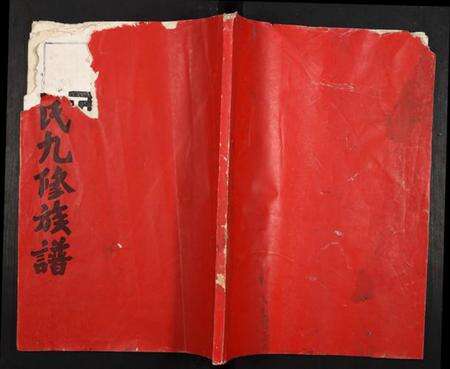 氏九修族譜